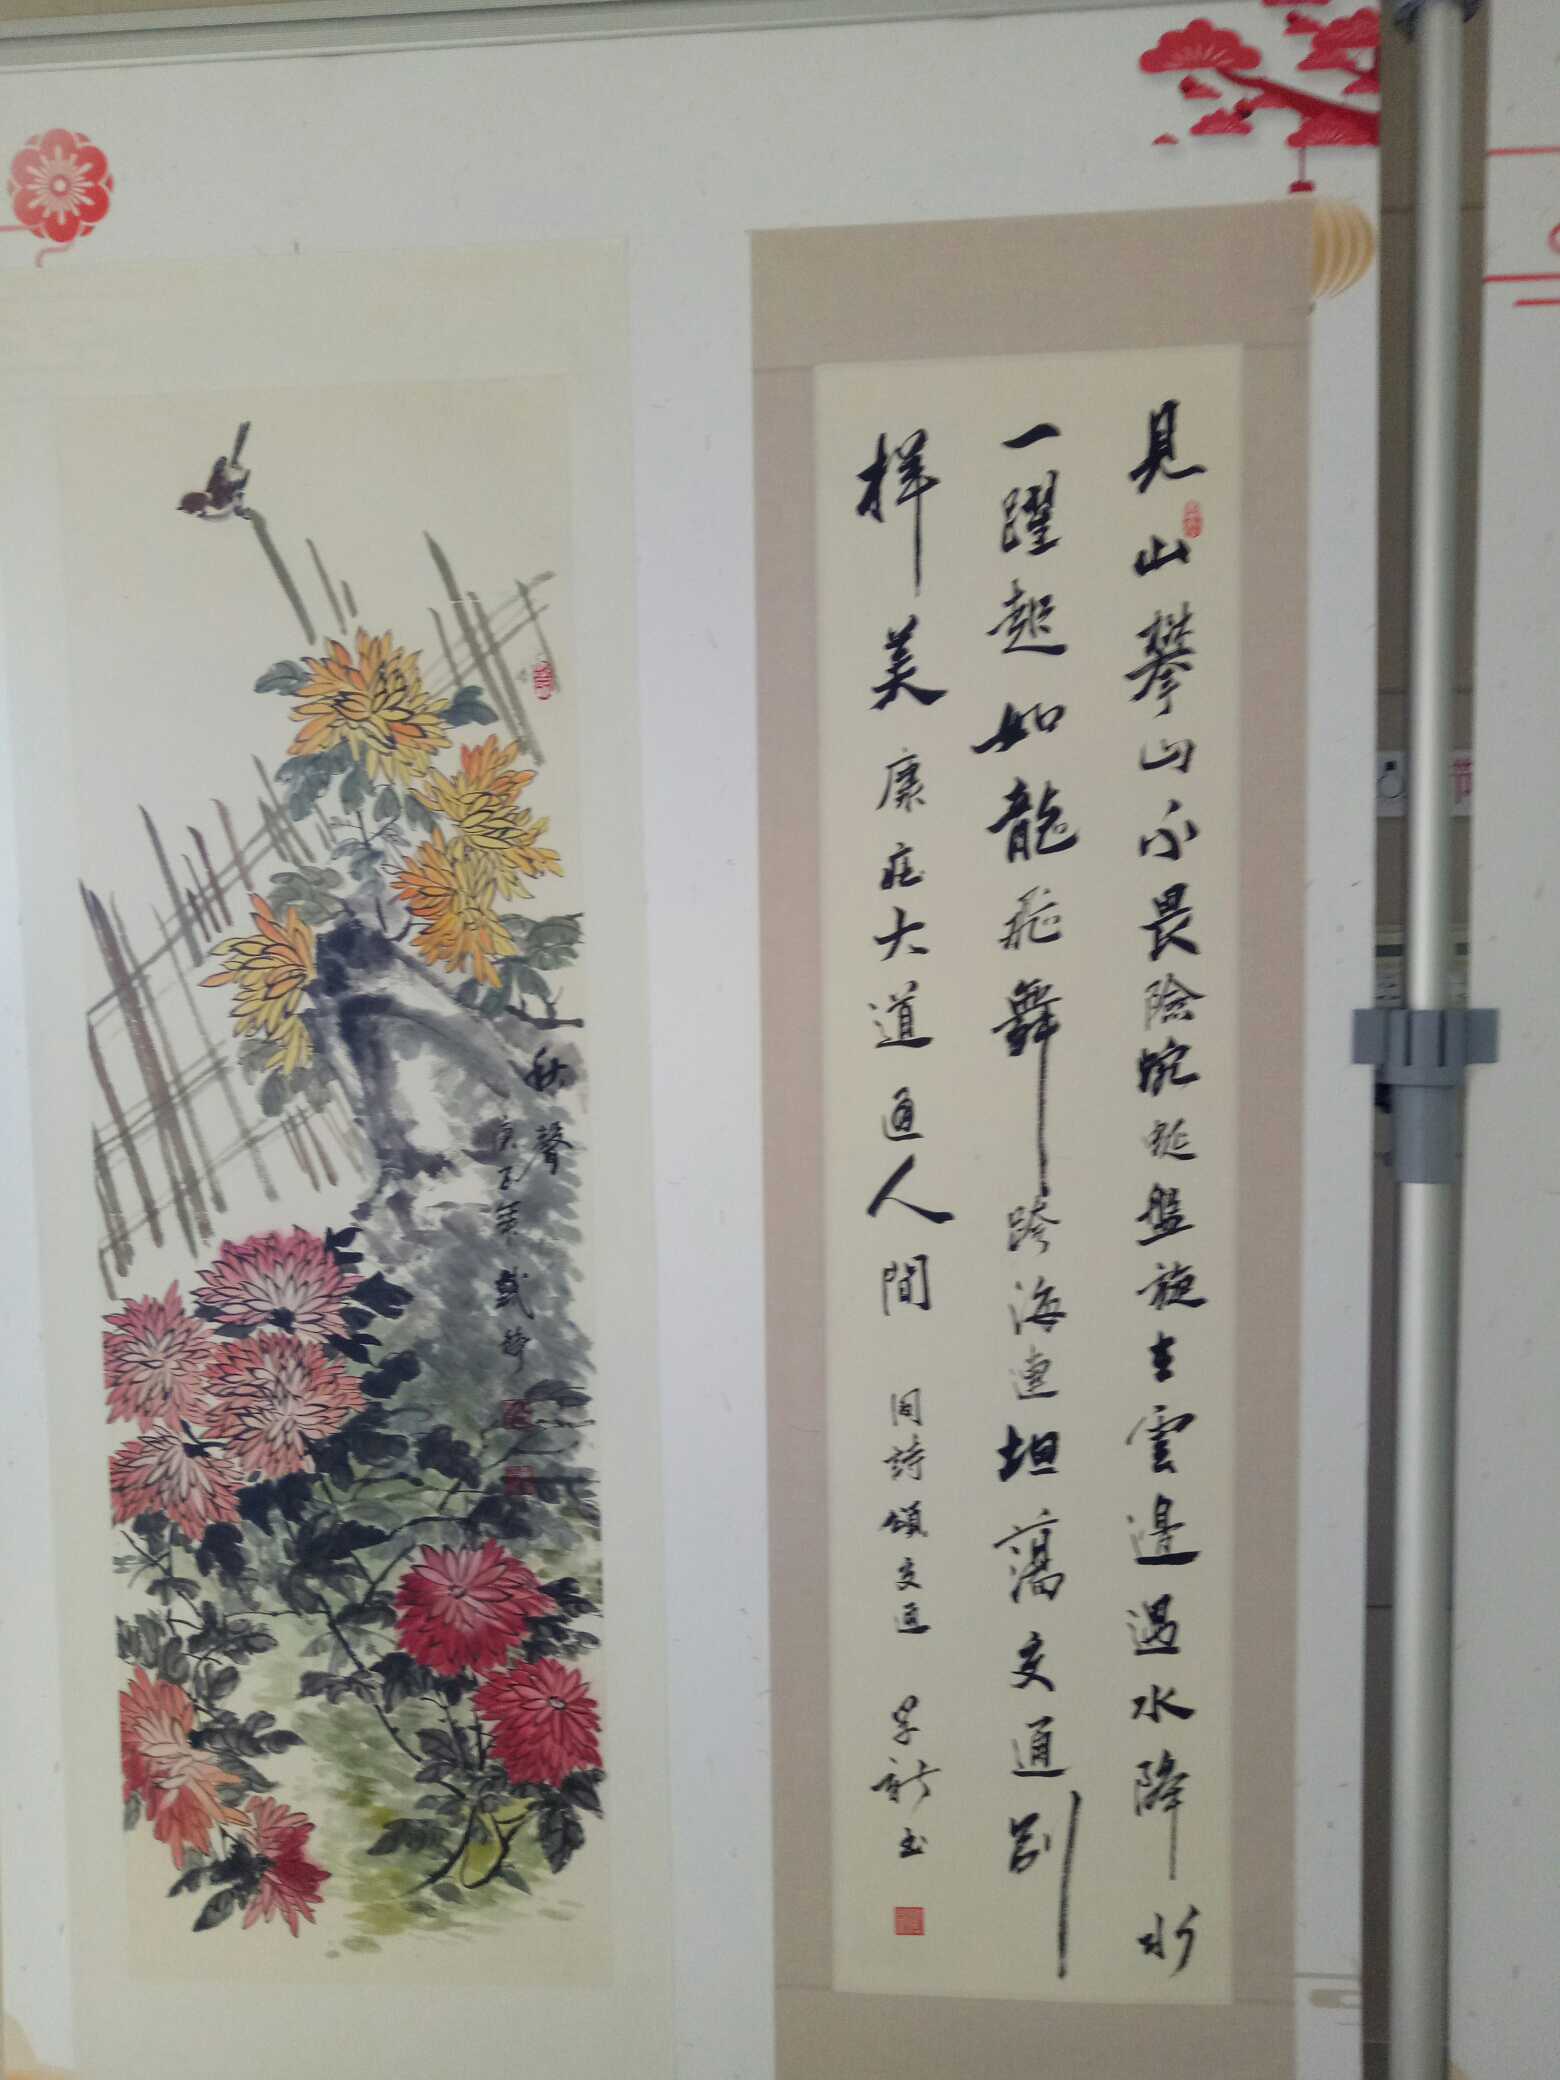 見山攀山不畏險蜿蜒盤旋在雲邊遇水降水
一躍起如龍飛舞跨海連坦蕩交通別
樣美康莊大道通人間
同詩頌交通
学新书
秋聲
庚子年